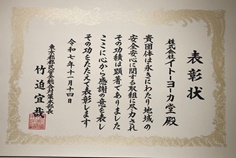 表彰状
株式会社イトーヨーカ堂殿
貴団体は永きにわたり地域の
安全安心に関する取組に尽力され
その功績は顕著でありました
ここに心から感謝の意を表し
その功をたたえて表彰します
令和七年十一月十四日
竹迫宜哉